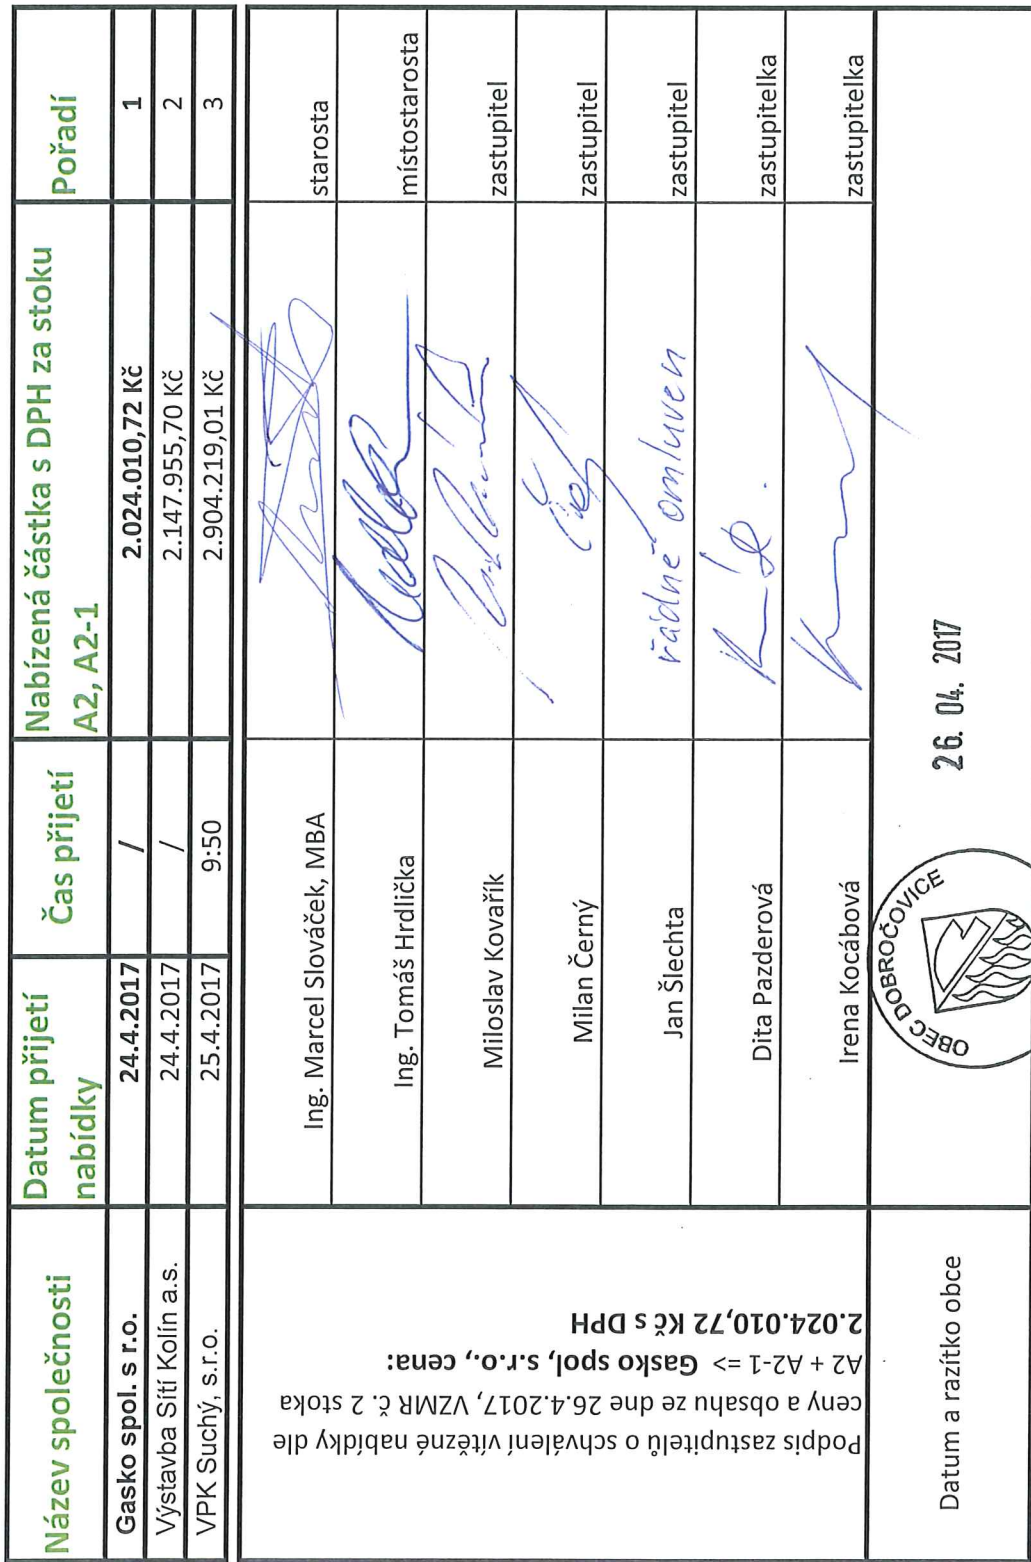 Název společnosti
Datum přijetí
nabídky
Čas přijetí
Nabízená částka s DPH za stoku
A2, A2-1
Pořadí
Gasko spol. s r.o. 24.4.2017 / 2.024.010,72 Kč 1
Výstavba Sítí Kolín a.s. 24.4.2017 / 2.147.955,70 Kč 2
VPK Suchý, s.r.o. 25.4.2017 9:50 2.904.219,01 Kč 3
Podpis zastupitelů o schválení vítězné nabídky dle
ceny a obsahu ze dne 26.4.2017, VZMR č. 2 stoka
A2 + A2-1 => Gasko spol, s.r.o., cena:
2.024.010,72 Kč s DPH
Ing. Marcel Slováček, MBA starosta
Ing. Tomáš Hrdlička místostarosta
Miloslav Kovařík zastupitel
Milan Černý zastupitel
Jan Šlechta řádně omluven zastupitel
Dita Pazderová zastupitelka
Irena Kocábová zastupitelka
Datum a razítko obce
OBEC DOBROČOVICE
26. 04. 2017